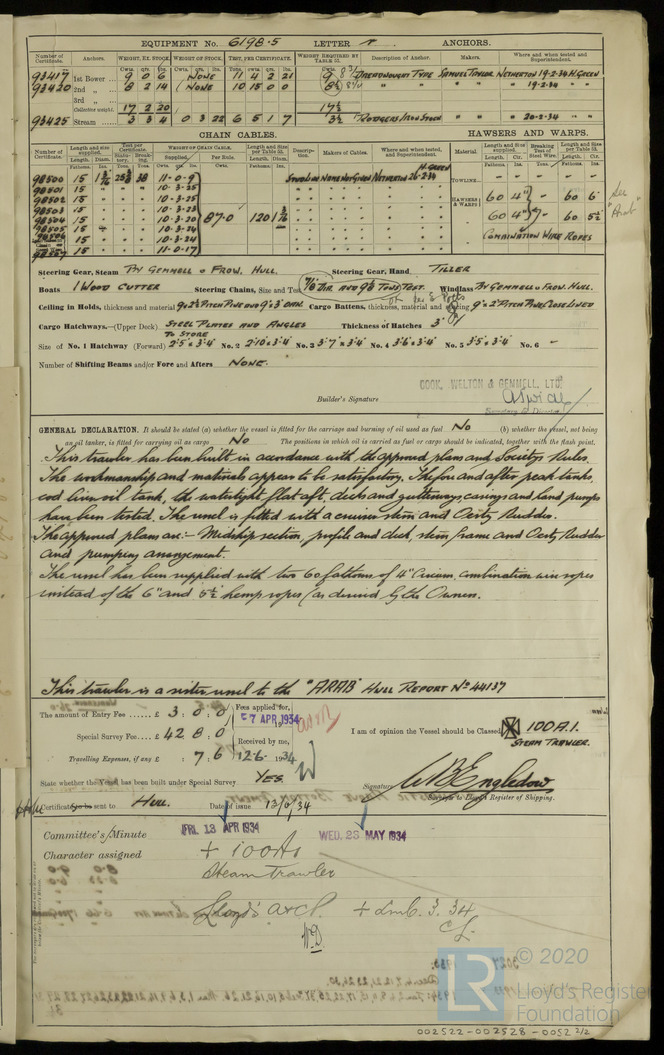 EQUIPMENT No. 6198.5 LETTER r ANCHORS.
Number of Certificate. Anchors. WEIGHT, EX. STOCK. WEIGHT OF STOCK. TEST, PER CERTIFICATE. WEIGHT REQUIRED BY TABLE 31. Description of Anchor. Makers. Where and when tested and Superintendent.
93417 1st Bower 9 0 6 NONE 11 4 2 21 9 DREADNOUGHT TYPE SAMUEL TAYLOR NETHERTON 19-2-34 H. GREEN
93420 2nd " 8 2 14 NONE 10 15 0 0 8½ " " " " 19-2-34 "
3rd "
Collective weight. 17 2 20 17½
93425 Stream 3 3 4 0 3 22 6 5 1 7 3½ RODGERS IRON STOCK " " " 20-2-34 "
CHAIN CABLES. HAWSERS AND WARPS.
Number of Certificate. Length and size supplied. Test per Certificate WEIGHT OF CHAIN CABLE. Length and size per Table 31. Description. Makers of Cables. Where and when tested, and Superintendent. Material. Length and size supplied. Breaking Test of Steel Wire. Length and size per Table 31.
98500 15 38 11-0-9 STUD LINK NONE NOT GIVEN NETHERTON 26-2-34 H. GREEN TOWLINE
98501 15 " 10-3-25
98502 15 " 10-3-25 HAWSERS & WARPS 60 4" - 60 6"
98503 15 " 10-3-23
98504 15 " 10-3-20 87-0 120 60 4" - 60 5½"
98505 15 " 10-3-24
98506 15 " 10-3-24 COMBINATION WIRE ROPES
98507 15 " 11-0-17
See "Arab"
Steering Gear, Steam BY GEMMELL & FROW. HULL. Steering Gear, Hand TILLER
Boats 1 WOOD CUTTER Steering Chains, Size and Test 7/8 DIA. AND 9⅛ TONS TEST. Windlass BY GEMMELL & FROW. HULL.
Ceiling in Holds, thickness and material 9 x 2½ PITCH PINE AND 9 x 3" OAK. Cargo Battens, thickness, material and spacing 9" x 2" PITCH PINE CLOSE LINED
Cargo Hatchways.—(Upper Deck) STEEL PLATES AND ANGLES Thickness of Hatches 3"
TO STORE
Size of No. 1 Hatchway (Forward) 2'5 x 3'4" No. 2 2'10 x 3'4" No. 3 3'7" x 3'4" No. 4 3'6 x 3'4" No. 5 3'5 x 3'4" No. 6 -
Number of Shifting Beams and/or Fore and Afters NONE.
COOK, WELTON & GEMMELL, LTD.
Builder's Signature
Secretary & Director
GENERAL DECLARATION. It should be stated (a) whether the vessel is fitted for the carriage and burning of oil used as fuel No (b) whether the vessel, not being
an oil tanker, is fitted for carrying oil as cargo No The positions in which oil is carried as fuel or cargo should be indicated, together with the flash point.
This trawler has been built in accordance with the approved plans and Society's Rules.
The workmanship and materials appear to be satisfactory. The fore and after peak tanks,
cod liver oil tank, the watertight flat aft, decks and gutterways, casings and hand pumps
have been tested. The vessel is fitted with a cruiser stern and Oertz Rudder.
The approved plans are:- Midship section, profile and deck, stern frame and Oertz Rudder
and pumping arrangement.
The vessel has been supplied with two 60 fathoms of 4" circum. combination wire ropes
instead of the 6" and 5½" hemp ropes (as desired by the Owners.
This trawler is a sister vessel to the "ARAB" HULL REPORT No 44137
The amount of Entry Fee ...... £ 3 : 0 : 0
Special Survey Fee.... £ 42 : 8 : 0
Travelling Expenses, if any £ : 7 : 6
Fees applied for,
7 APR 1934
Received by me,
12.6. 1934
I am of opinion the Vessel should be Classed 100A1.
STEAM TRAWLER.
State whether the Vessel has been built under Special Survey YES.
Signature W B Engledow
Surveyor to Lloyd's Register of Shipping.
Certificate to be sent to HULL. Date of issue 13/6/34
Committee's Minute FRI. 13 APR 1934 WED. 23 MAY 1934
Character assigned + 100A1
Steam Trawler
Lloyd's a&cp. + LMC. 3. 34
CL.
W.D.
LR © 2020
Lloyd's Register
Foundation
002522-002528-0052 2/2